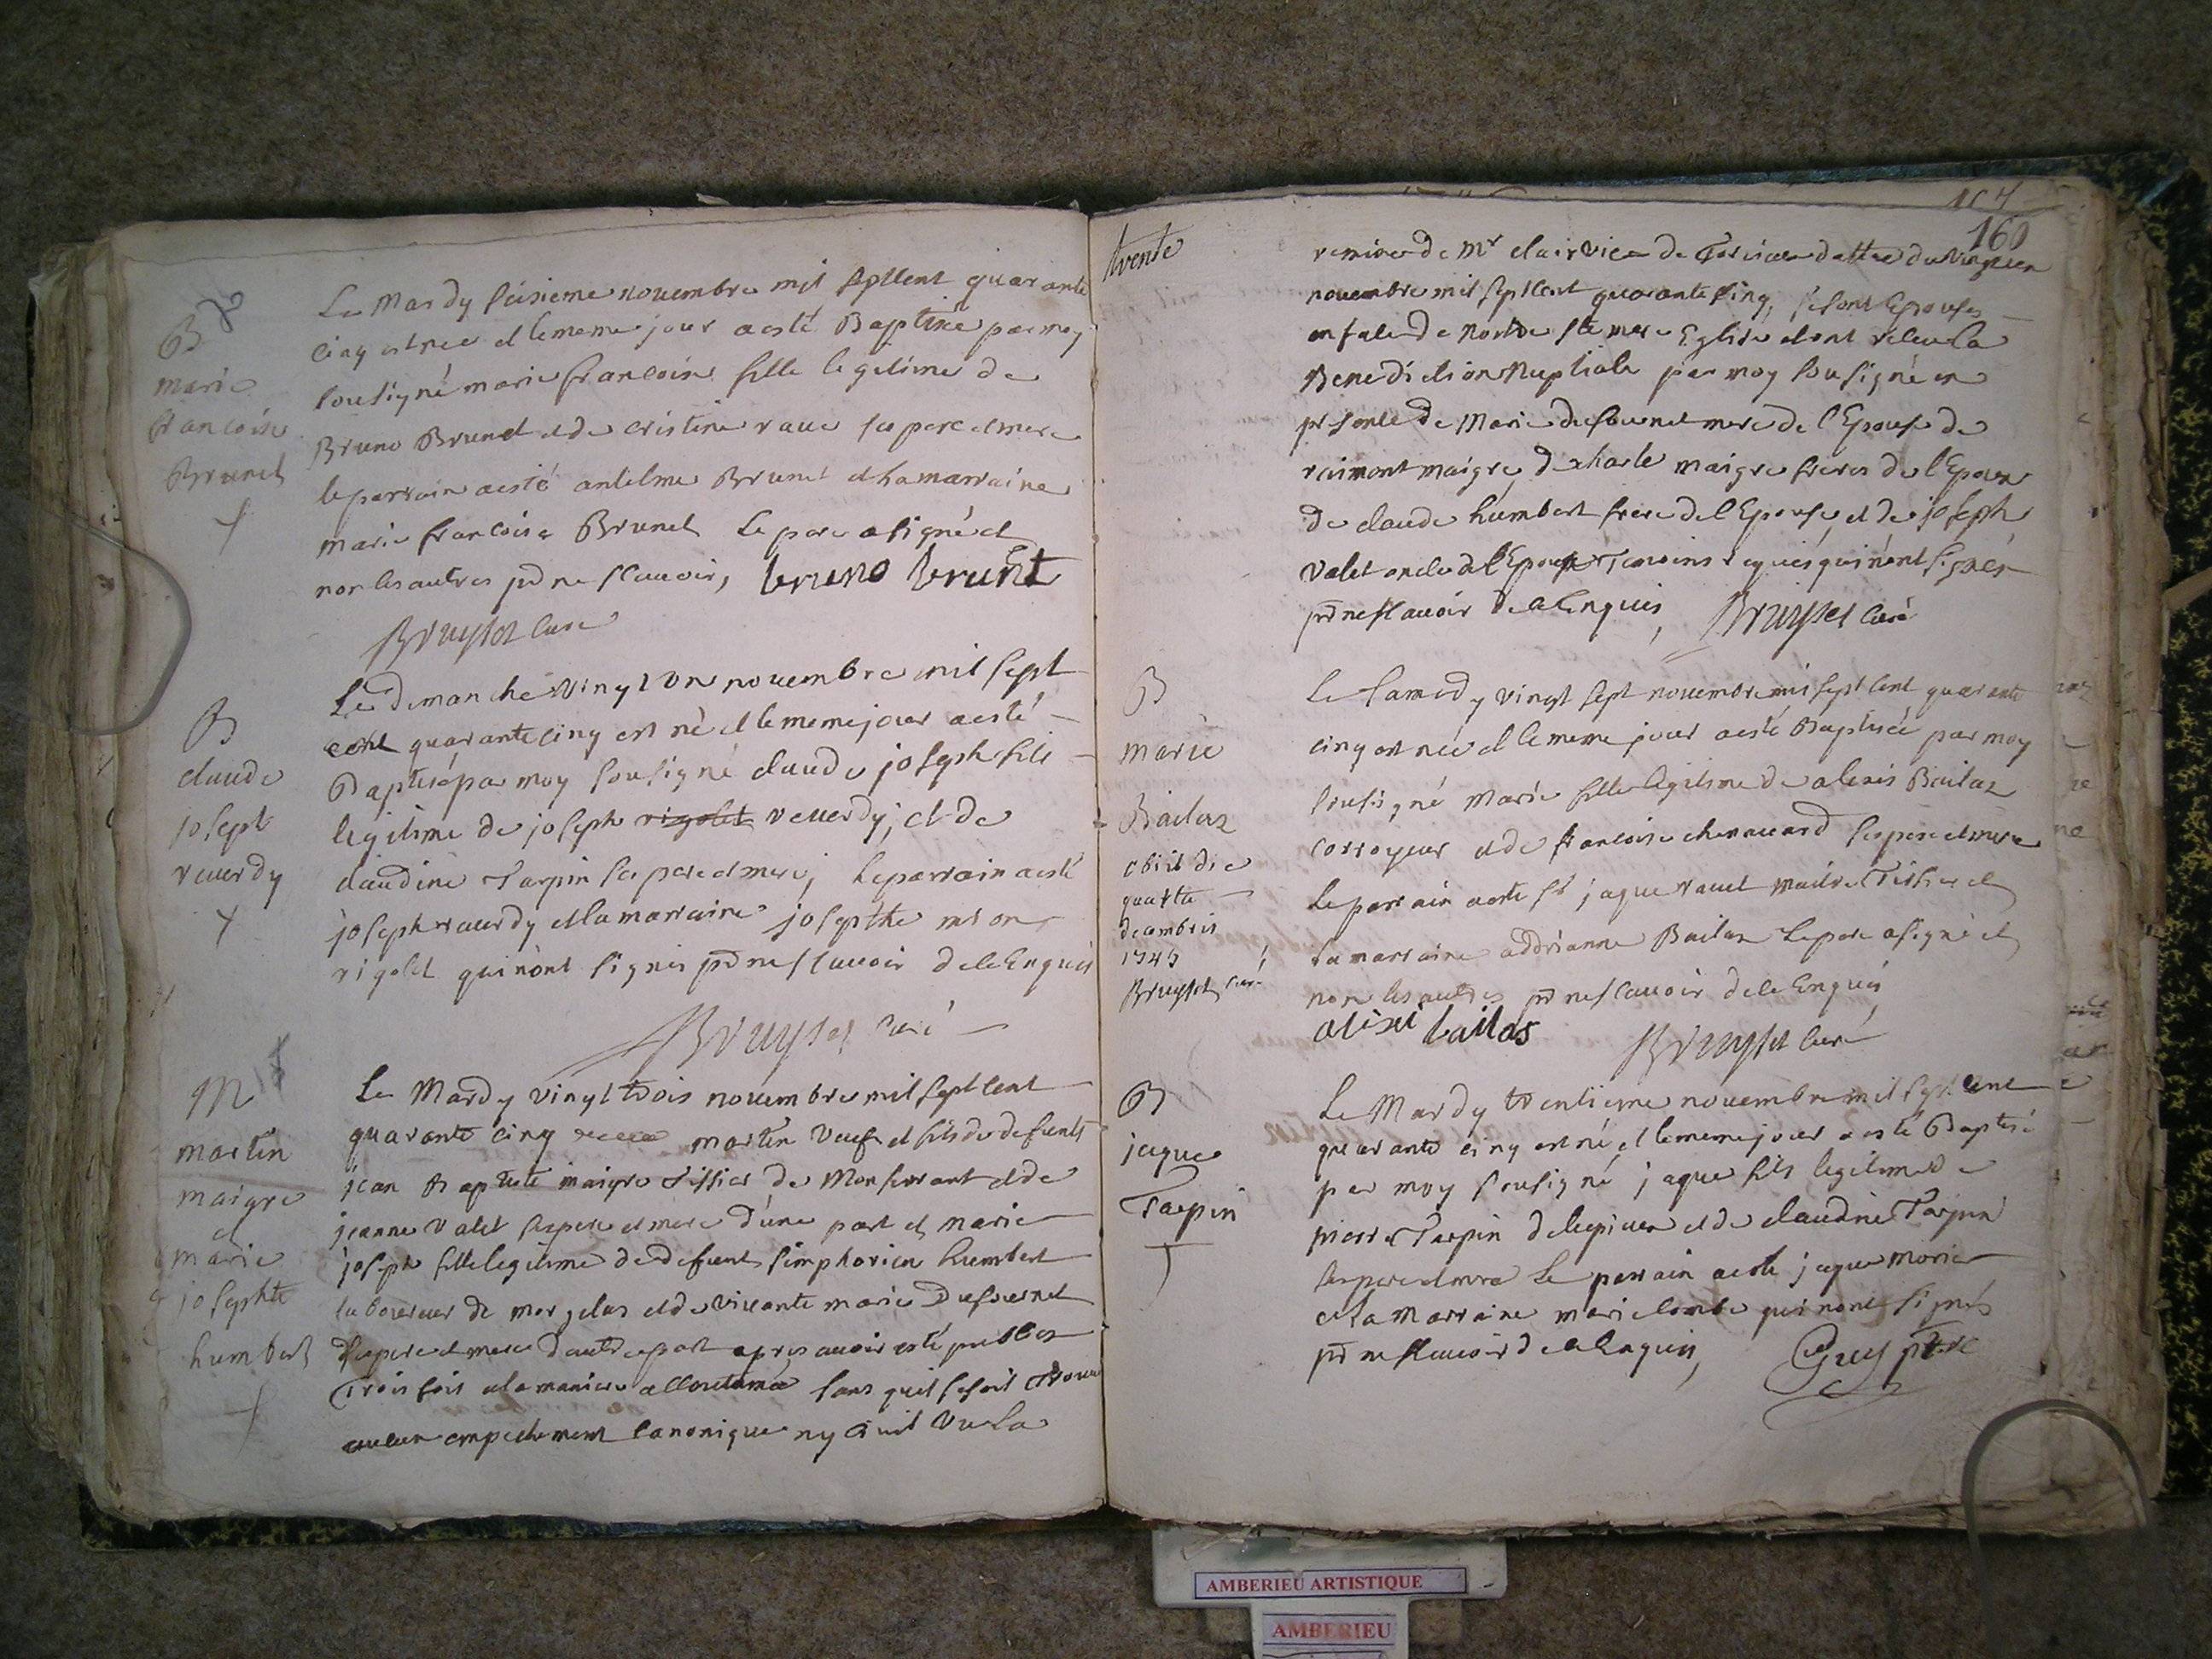 B
marie
francoise
Brunet
Le Mardy seisieme novembre mil septcent quarante
cinq est nee et le meme jour a esté Baptisée par moy
sousigné marie francoise fille legitime de
Bruno Brunet et de cristine rave ses pere et mere
le parrain a esté antelme Brunet et la marraine
marie francoise Brunet le pere a signé et
non les autres pr ne scavoir, bruno brunt
Bruyset curé
B
claude
joseph
reverdy
Le dimanche vingt un novembre mil sept
cent quarante cinq est né et le meme jour a esté
Baptisé par moy sousigné claude joseph fils
legitime de joseph rigolet reverdy, et de
claudine Tarpin ses pere et mere, le parrain a esté
joseph reverdy et la marraine josephte
rigolet qui n'ont signés pr ne scavoir de ce Enquis
Bruyset curé
M
martin
maigre
et
marie
josephte
humbert
Le Mardy vingt trois novembre mil sept cent
quarante cinq martin veuf et fils de defunts
jean Baptiste maigre Tissier de Monferrant et de
jeanne valet ses pere et mere d'une part et marie
joseph fille legitime de defunt simphorien humbert
laboureur de morgelas et de vivante marie Dufournet
ses pere et mere d'autre part apres avoir esté publiés
Trois fois a la maniere accoutumée sans qu'il se soit trouvé
aucun empechement canonique ny civil vu la
trente
157
160
remise de Mr clair vic de dattée du vingt un
novembre mil sept cent quarante cinq, se sont Epousés
en face de nostre ste mere Eglise et ont recu la
Benediction Nuptiale par moy sousigné en
presence de Marie dufournet mere de l'Epouse de
raimont maigre, de charle maigre freres de l'Epoux
de claude humbert frere de l'Epouse, et de joseph
valet oncle de l'Epoux Temoins requis qui n'ont signés
pr ne scavoir de ce Enquis, Bruyset curé
B
marie
Bailas
obiit die
quarta
decembris
1745
Bruyset curé
Le samedy vingt sept novembre mil sept cent quarante
cinq est née et le meme jour a esté Baptisée par moy
sousigné Marie fille legitime de alexis Bailas
corroyeur et de francoise chenavard ses pere et mere
le parrain a esté sr jaque ravet maitre Tissier et
la marraine addrianne Bailas le pere a signé et
non les autres pr ne scavoir de ce Enquis
alexi bailas
Bruyset curé
B
jaque
Tarpin
Le Mardy trentieme novembre mil sept cent
quarante cinq est né, et le meme jour a esté Baptisé
par moy sousigné jaque fils legitime de
pierre Tarpin et de claudine Tarpin
ses pere et mere le parrain a esté jaque morier
et la Marraine marie combe qui n'ont signés
pr ne scavoir de ce Enquis, Guy ptre
AMBERIEU ARTISTIQUE
AMBERIEU